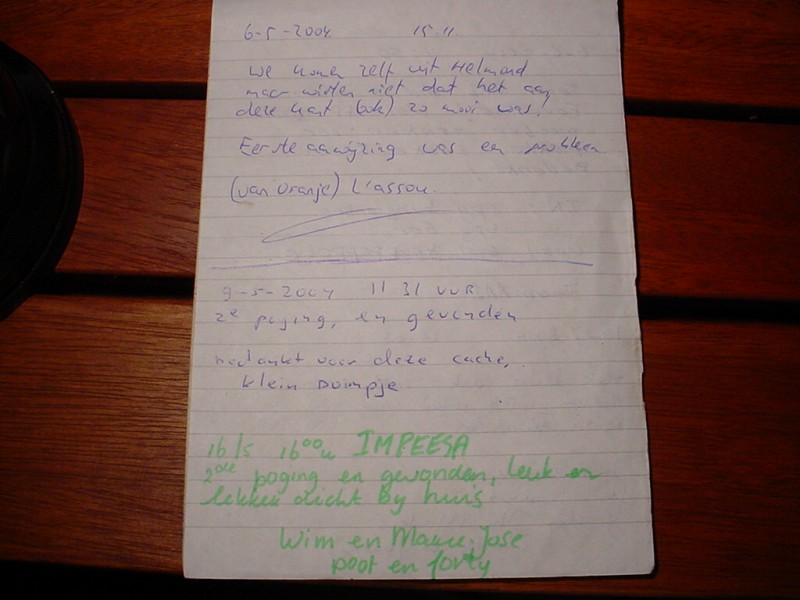 6-5-2004 15.11
We komen zelf uit Helmond
maar wisten niet dat het aan
deze kant (ook) zo mooi was!
Eerste aanwijzing was een probleem
(van Oranje) L'assou.
9-5-2004 11 31 UUR
2e poging, en gevonden
bedankt voor deze cache,
klein Duimpje
16/5 16ººu IMPEESA
2de poging en gevonden, leuk en
lekker dicht by huis
Wim en Marie-Jose
poot en forty